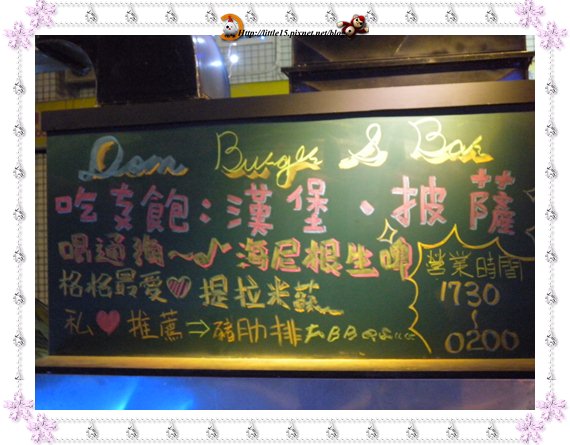 Http://little15.pixnet.net/blog
Dan Burger & Bar
吃幸飽:漢堡、披薩
喝通海~♪海尼根生啤
格格最愛♥提拉米蘇
私♥推薦⇒豬肋排
營業時間
1730
~
0200